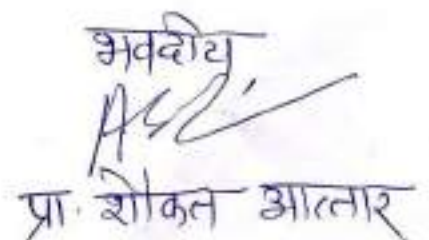 भवदीय
प्रा. शौकत आत्तार